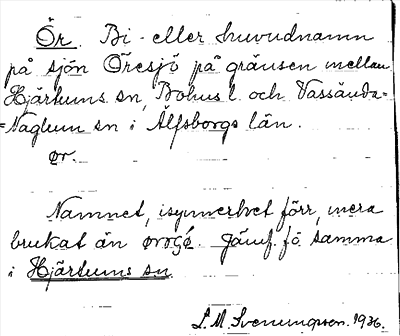 Ör. Bi- eller huvudnamn
på sjön Öresjö på gränsen mellan
Hjärtums sn, Bohus l. och Vassända-
-Naglum sn i Älfsborgs län.
ør.
Namnet, isynnerhet förr, mera
brukat än Jämf. fö samma
i Hjärtums sn
L. M. Svenungsson. 1936.